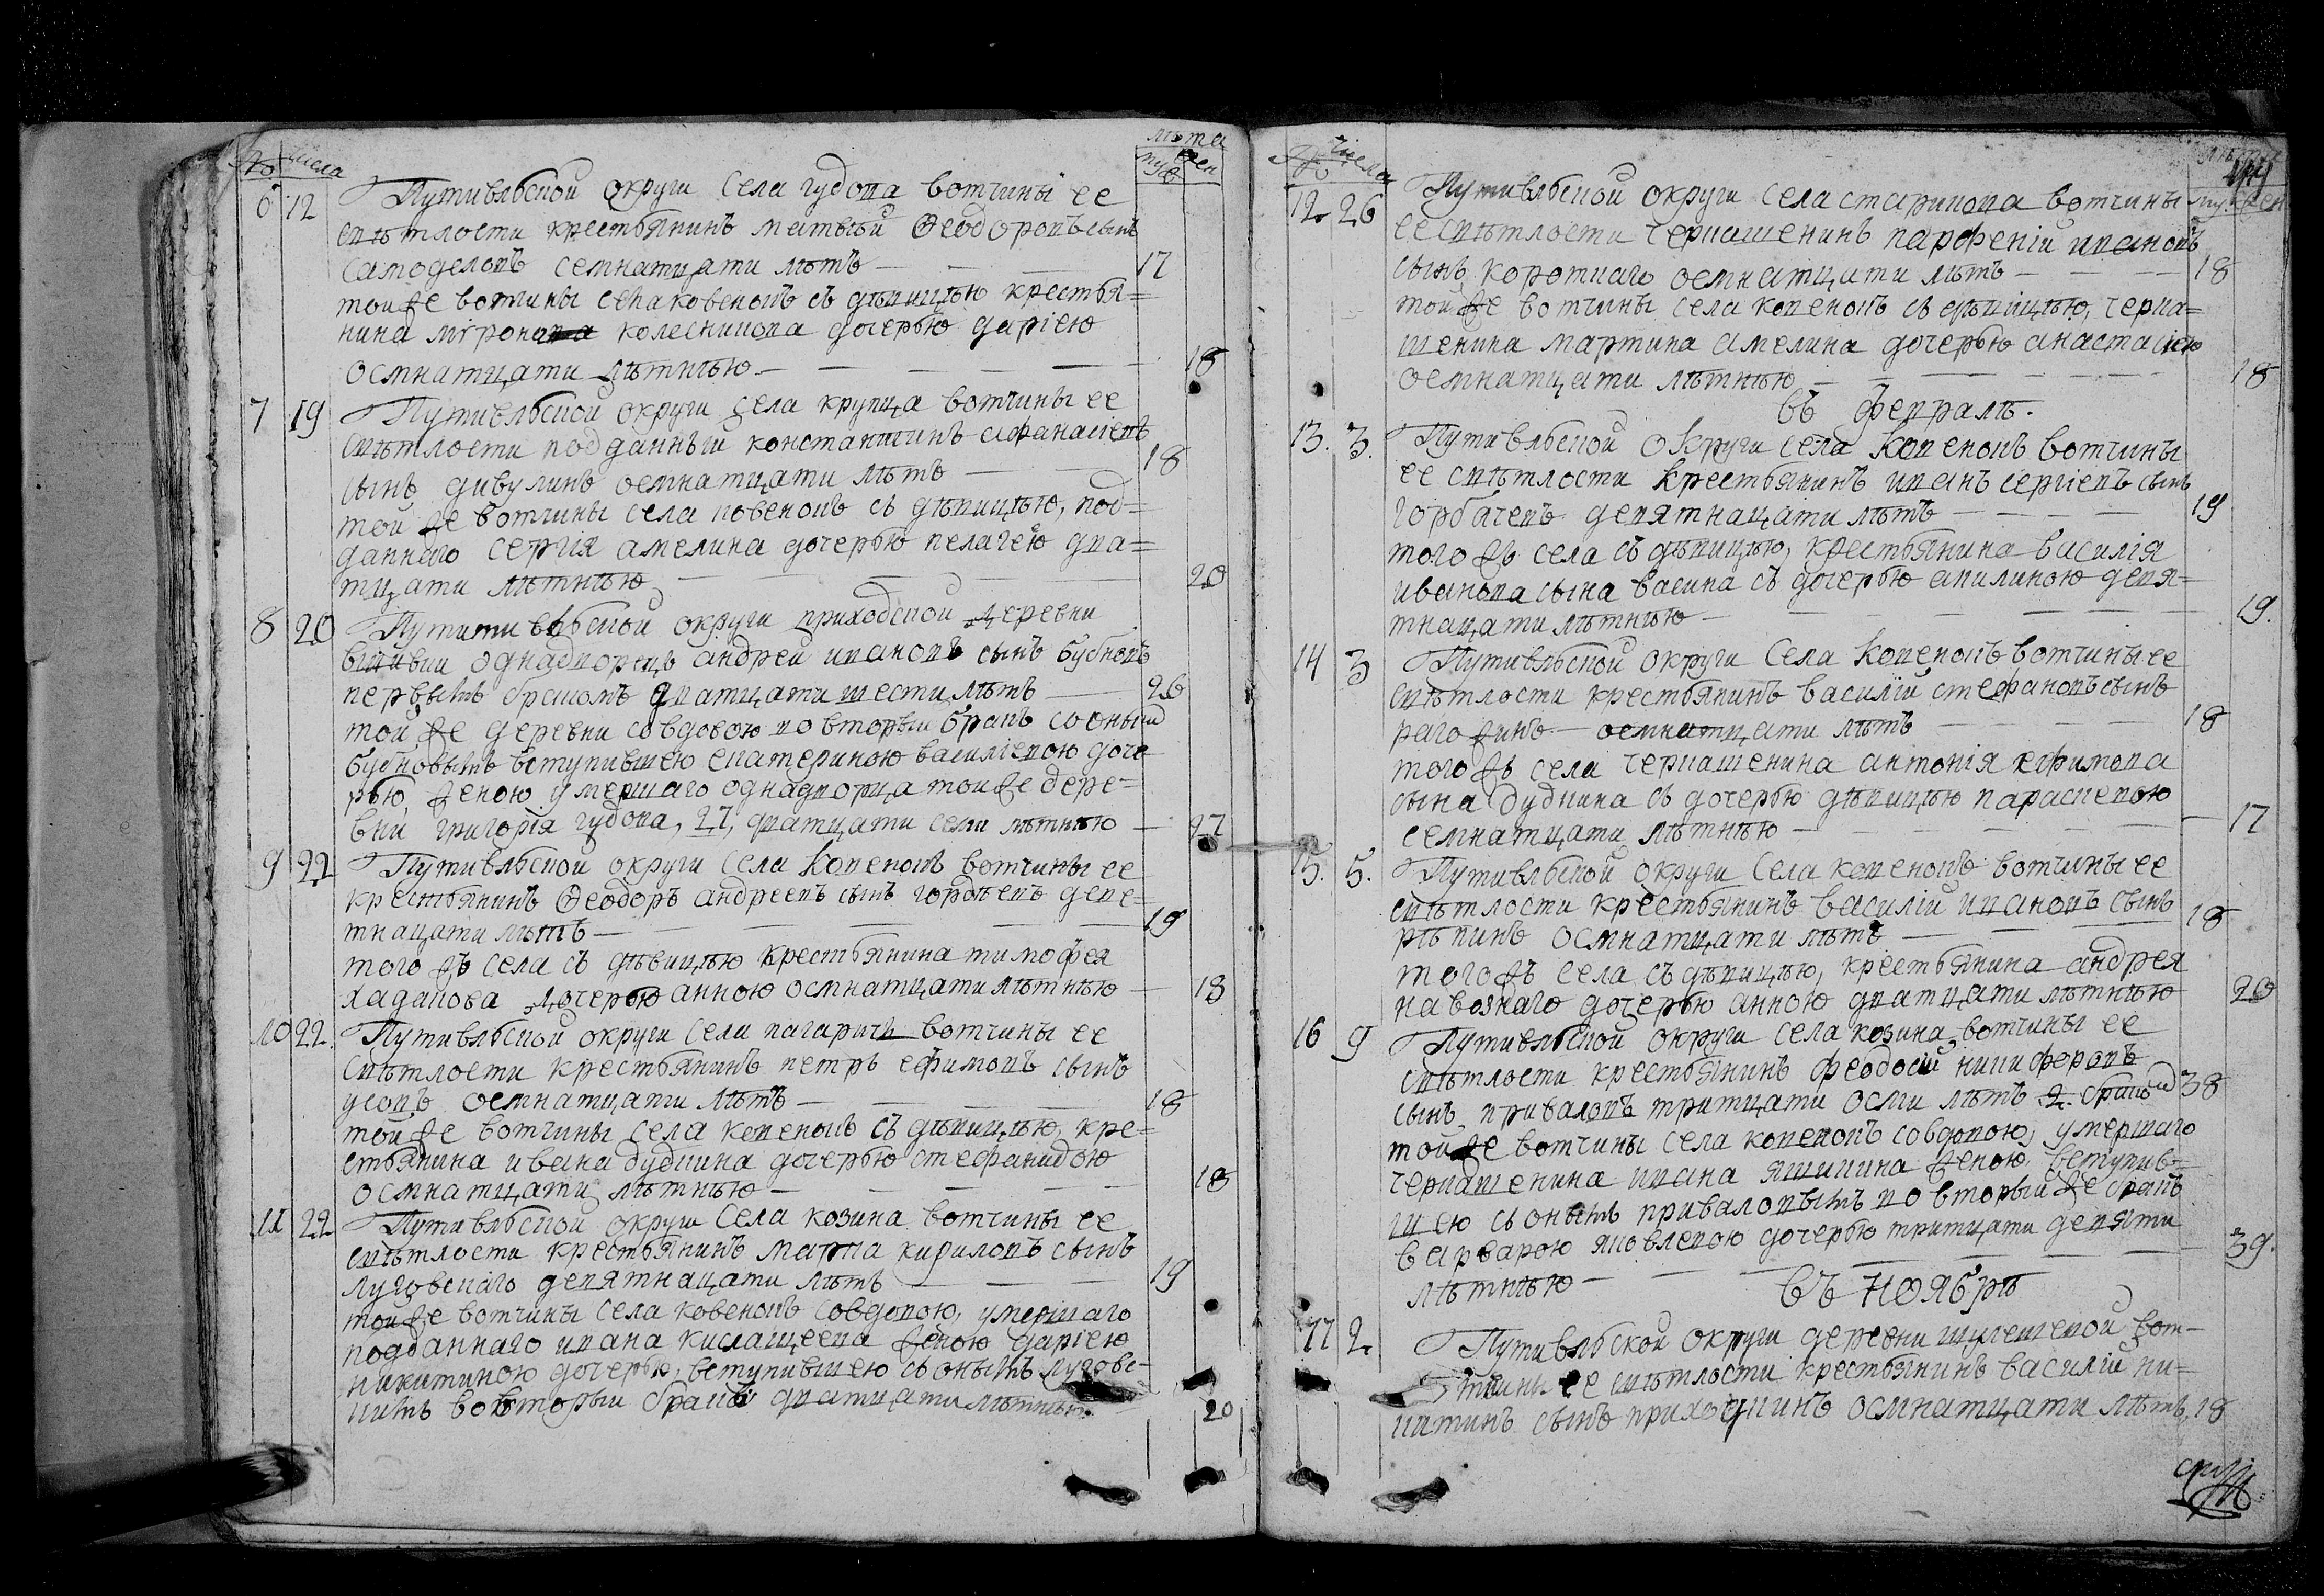 № числа
лѣта
муж жен
6 12 Путивльской округи села гудова вотчины ее
свѣтлости крестьянинъ матвѣй Ѳеодоровъ сынъ
самоделовъ семнатцати лѣтъ — 17
той же вотчины села ковенокъ съ дѣвицею крестья=
нина мирона колесникова дочерью дариею
осмнатцати лѣтнею — 18
7 19 Путивльской округи села крупца вотчины ее
свѣтлости подданный константинъ афанасиевъ
сынъ дивулинъ осмнатцати лѣтъ — 18
той же вотчины села ковенокъ съ дѣвицею, под=
даннаго сергия амелина дочерью пелагеею два=
тцати лѣтнею — 20
8 20 Путитивльской округи приходской деревни
однадворецъ андрей ивановъ сынъ бубновъ
первымъ бракомъ дватцати шести лѣтъ — 26
той же деревни совдовою повторый бракъ со онымъ
бубновымъ вступившею екатериною василиевою доче
рью, женою умершаго однадворца той же дере-
вни григория гудова, 27, дватцати семи лѣтнею — 27
9 22 Путивльской округи села Ковенокъ вотчины ее
крестьянинъ Ѳеодоръ андреевъ сынъ гордѣевъ деве=
тнацати лѣтъ — 19
того жъ села съ дѣвицею крестьянина тимофея
хадакова дочерью анною осмнатцати лѣтнею — 18
10 22. Путивльской округи села вотчины ее
свѣтлости крестьянинъ петръ ефимовъ сынъ
усовъ осмнатцати лѣтъ — 18
той же вотчины села ковенокъ съ дѣвицею, кре=
стьянина ивана дудкина дочерью стефанидою
осмнатцати лѣтнею — 18
11 22 Путивльской округи Села козина вотчины ее
свѣтлости крестьянинъ марка кириловъ сынъ
луговскаго девятнацати лѣтъ — 19
той же вотчины села ковенокъ совдовою, умершаго
подданнаго ивана кислащеева женою дариею
никитиною дочерью, вступившею съ онымъ лугове-
кимъ вовторый бракъ дватцати лѣтнею 20
№ числа
муж. жен
12 26 Путивльской округи села старикова вотчины
ее свѣтлости черкашенинъ парфений ивановъ
сынъ короткаго осмнатцати лѣтъ — 18
той же вотчины села ковенокъ съ дѣвицею, черка=
шенина мартина амелина дочерью анастасиею
осмнатцати лѣтнею — 18
въ февралѣ.
13. 3. Путивльской округи села Ковенокъ вотчины
ее свѣтлости крестьянинъ иванъ сергиевъ сынъ
горбачевъ девятнацати лѣтъ — 19
того жъ села съ дѣвицею, крестьянина василия
иванова сына васина съ дочерью акилиною девя=
тнацати лѣтнею — 19.
14 3 Путивльской округи Села Ковенокъ вотчины ее
свѣтлости крестьянинъ василий стефановъ сынъ
рагожинъ осмнатцати лѣтъ — 18
того жъ села черкашенина антония ефимова
сына дудкина съ дочерью дѣвицею параскевою
семнатцати лѣтнею — 17
15. 5. Путивльской округи Села ковенокъ вотчины ее
свѣтлости крестьянинъ василий ивановъ сынъ
рѣпинъ осмнатцати лѣтъ — 18
того жъ села съ дѣвицею, крестьянина андрея
навознаго дочерью анною дватцати лѣтнею 20
16 9 Путивльской округи села козина вотчины ее
свѣтлости крестьянинъ феодосий никифоровъ
сынъ, приваловъ тритцати осми лѣтъ 2. бракомъ 38
той же вотчины села ковенокъ совдовою, умершаго
черкашенина ивана яшикина женою, вступив=
шею съ онымъ приваловымъ повторый же бракъ
варварою яковлевою дочерью тритцати девяти
лѣтнею — 39.
Въ Ноябрѣ
17 2 Путивльской округи деревни вот-
чины ее свѣтлости крестьянинъ василий ни-
китинъ сынъ приходкинъ осмнатцати лѣтъ, 18